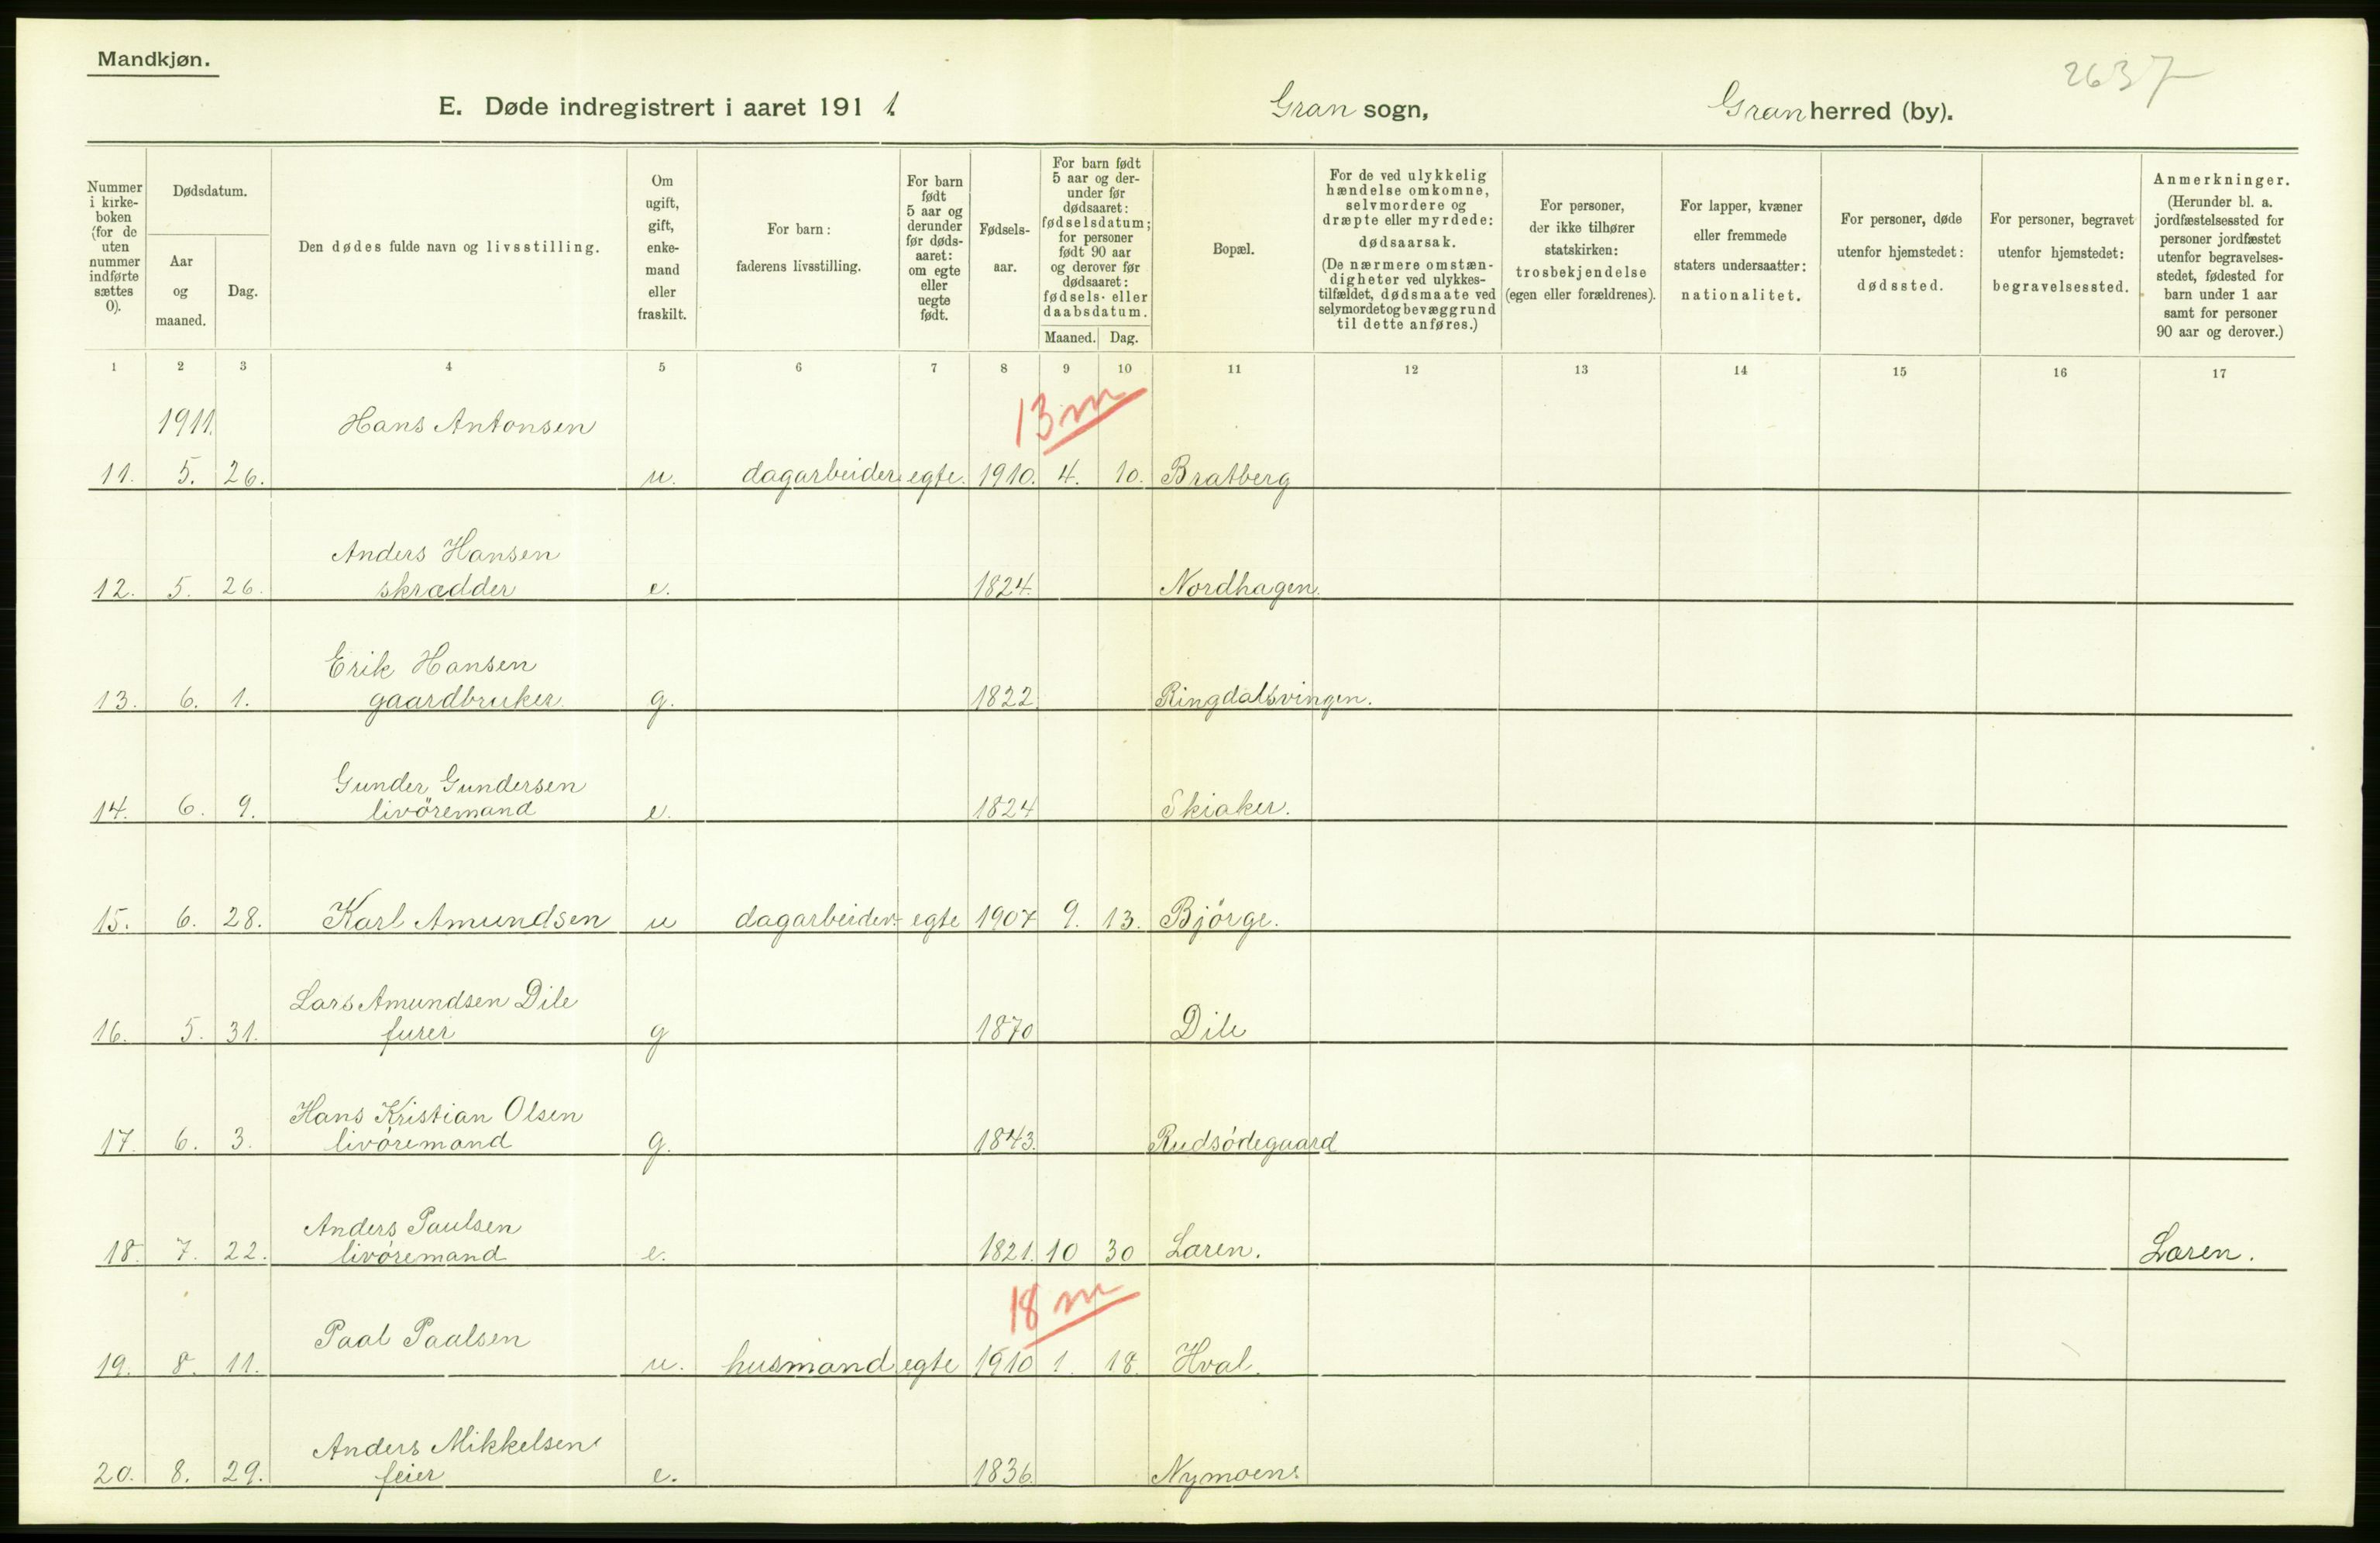 Mandkjøn.
2637
E. Døde indregistrert i aaret 1911. Gran sogn, Gran herred (by).
Nummer i kirkeboken (for de uten nummer indførte sættes 0).
Dødsdatum.
Aar og maaned.
Dag.
Den dødes fulde navn og livsstilling.
Om ugift, gift, enkemand eller fraskilt.
For barn: faderens livsstilling.
For barn født 5 aar og derunder før dødsaaret: om egte eller uegte født.
Fødselsaar.
For barn født 5 aar og derunder før dødsaaret: fødselsdatum; for personer født 90 aar og derover før dødsaaret: fødsels- eller daabsdatum.
Maaned. Dag.
Bopæl.
For de ved ulykkelig hændelse omkomne, selvmordere og dræpte eller myrdede: dødsaarsak. (De nærmere omstændigheter ved ulykkestilfældet, dødsmaate ved selvmordet og bevæggrund til dette anføres.)
For personer, der ikke tilhører statskirken: trosbekjendelse (egen eller forældrenes).
For lapper, kvæner eller fremmede staters undersaatter: nationalitet.
For personer, døde utenfor hjemstedet: dødssted.
For personer, begravet utenfor hjemstedet: begravelsessted.
Anmerkninger. (Herunder bl. a. jordfæstelsessted for personer jordfæstet utenfor begravelsesstedet, fødested for barn under 1 aar samt for personer 90 aar og derover.)
1 2 3 4 5 6 7 8 9 10 11 12 13 14 15 16 17
1911. Hans Antonsen 13 m
11. 5. 26. u. dagarbeider egte. 1910. 4. 10. Bratberg
Anders Hansen
12. 5. 26. skrædder e. 1824. Nordhagen.
Erik Hansen
13. 6. 1. gaardbruker. g. 1822. Ringdalsvingen.
Gunder Gundersen
14. 6. 9. livöremand e. 1824 Skiaker.
15. 6. 28. Karl Amundsen u dagarbeider egte 1907 9. 13. Björge.
Lars Amundsen Dile
16. 5. 31. furer g 1870 Dile
Hans Kristian Olsen
17. 6. 3. livöremand g. 1843. Rudsödegaard
Anders Paulsen
18. 7. 22. livöremand e. 1821. 10 30 Laren. Laren.
Paal Paalsen 18 m
19. 8. 11. u. husmand egte 1910 1. 18. Hval.
Anders Mikkelsen
20. 8. 29. feier e. 1836. Nymoen.